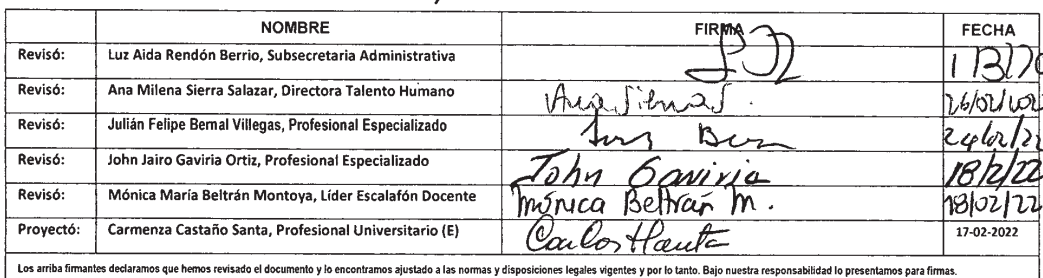 NOMBRE FIRMA FECHA
Revisó: Luz Aida Rendón Berrio, Subsecretaria Administrativa
Revisó: Ana Milena Sierra Salazar, Directora Talento Humano Ana Sierra S.
Revisó: Julián Felipe Bernal Villegas, Profesional Especializado 24/02/22
Revisó: John Jairo Gaviria Ortiz, Profesional Especializado John Gaviria 18/2/22
Revisó: Mónica María Beltrán Montoya, Líder Escalafón Docente Mónica Beltrán M. 18/02/22
Proyectó: Carmenza Castaño Santa, Profesional Universitario (E) 17-02-2022
Los arriba firmantes declaramos que hemos revisado el documento y lo encontramos ajustado a las normas y disposiciones legales vigentes y por lo tanto. Bajo nuestra responsabilidad lo presentamos para firmas.